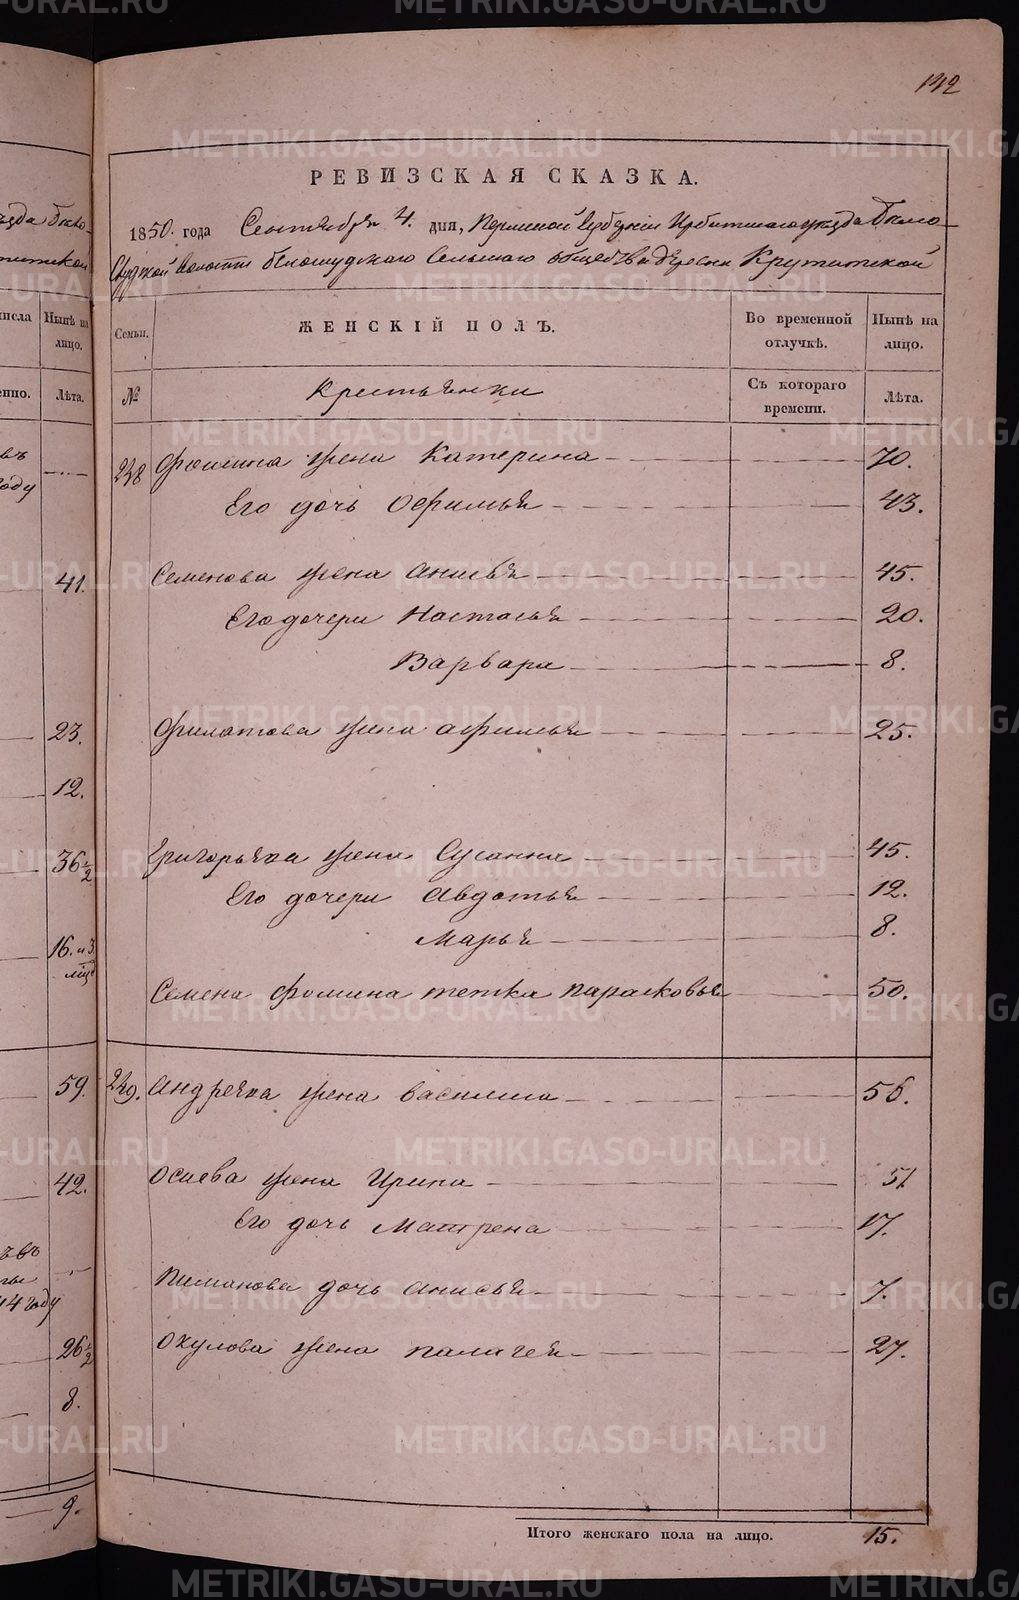 142
РЕВИЗСКАЯ СКАЗКА.
1850. года Сентября 4. дня, Пермской Губернiи Ирбитскаго уѣзда Бѣло-
слудской Волости Бѣлослудскаго Сельскаго общества деревни Крутитской
Семьи.
ЖЕНСКІЙ ПОЛЪ.
Во временной отлучкѣ.
Нынѣ на лицо.
№
Крестьянки
Съ котораго времени.
Лѣта.
238 Фомина жена Катерина 70.
Его дочь Офимья 43.
Семенова жена Анисья 45.
Его дочери Настасья 20.
Варвара 8.
Филатова жена Афимья 25.
Григорьева жена Сусанна 45.
Его дочери Авдотья 12.
Марья 8.
Семена Фомина тетка Парасковья 50.
239. Андреева жена Василиса 56.
Осиева жена Ирина 51
Его дочь Матрена 17.
Пиманова дочь Анисья 7.
Окулова жена Палагея 27.
Итого женскаго пола на лицо. 15.
числа
Нынѣ на лицо.
Лѣта.
41.
23.
12.
36 1/2
16. и 3
59.
42.
26 1/2
8.
9.
METRIKI.GASO-URAL.RU